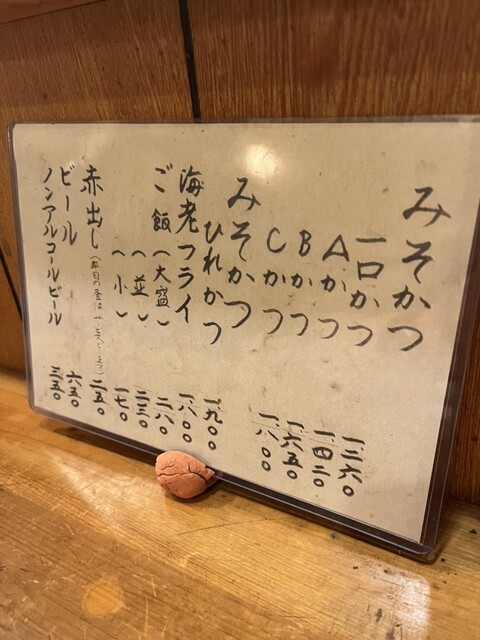 みそかつ
一口かつ 一、三六〇
Aかつ 一、四二〇
Bかつ 一、六五〇
Cかつ 一、八〇〇
みそかつ
ひれかつ 一、九〇〇
海老フライ 一、八〇〇
ご飯(大盛) 二八〇
(並) 二三〇
(小) 一七〇
赤出し 二五〇
ビール 六五〇
ノンアルコールビール 三五〇